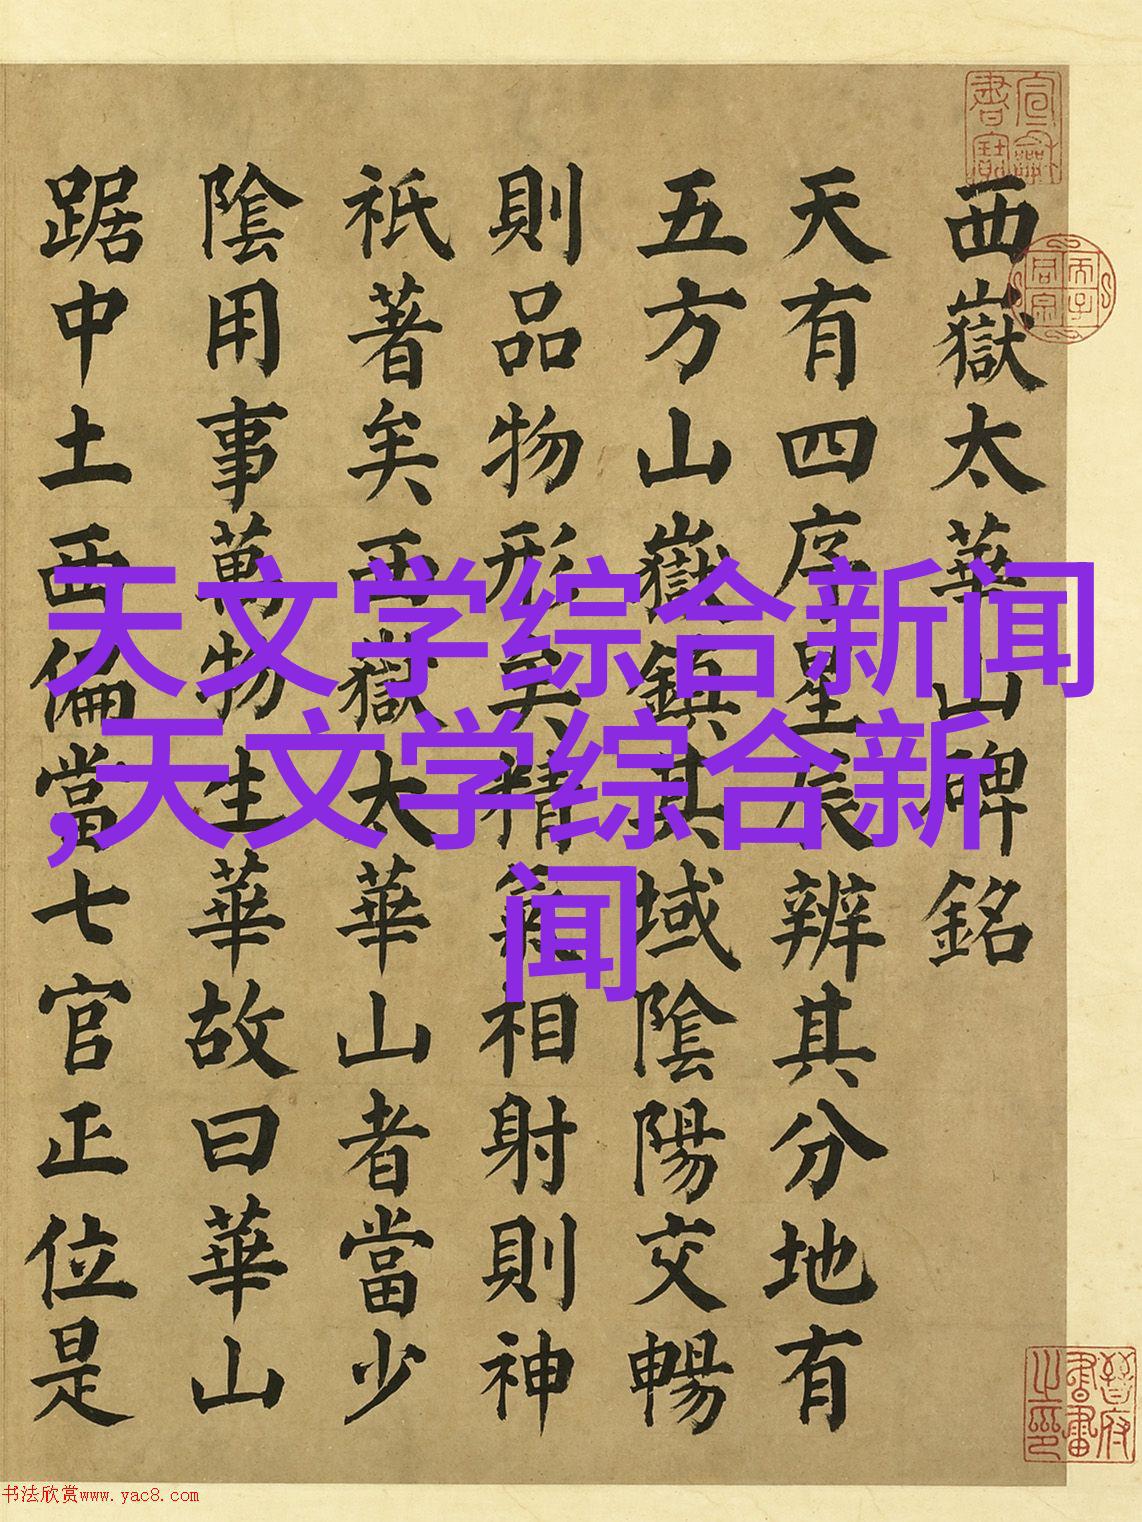 西嶽太華山碑銘
天有四序星辰辨其分地有
五方山嶽鎮其域陰陽交暢
則品物形矣精氣相射則神
祇著矣西嶽太華山者當少
陰用事萬物生華故曰華山
踞中土西偏當七官正位是
天文学综合新闻
,天文学综合新
闻
宣龢書寶
晉府書畫之印
书法欣赏www.yac8.com